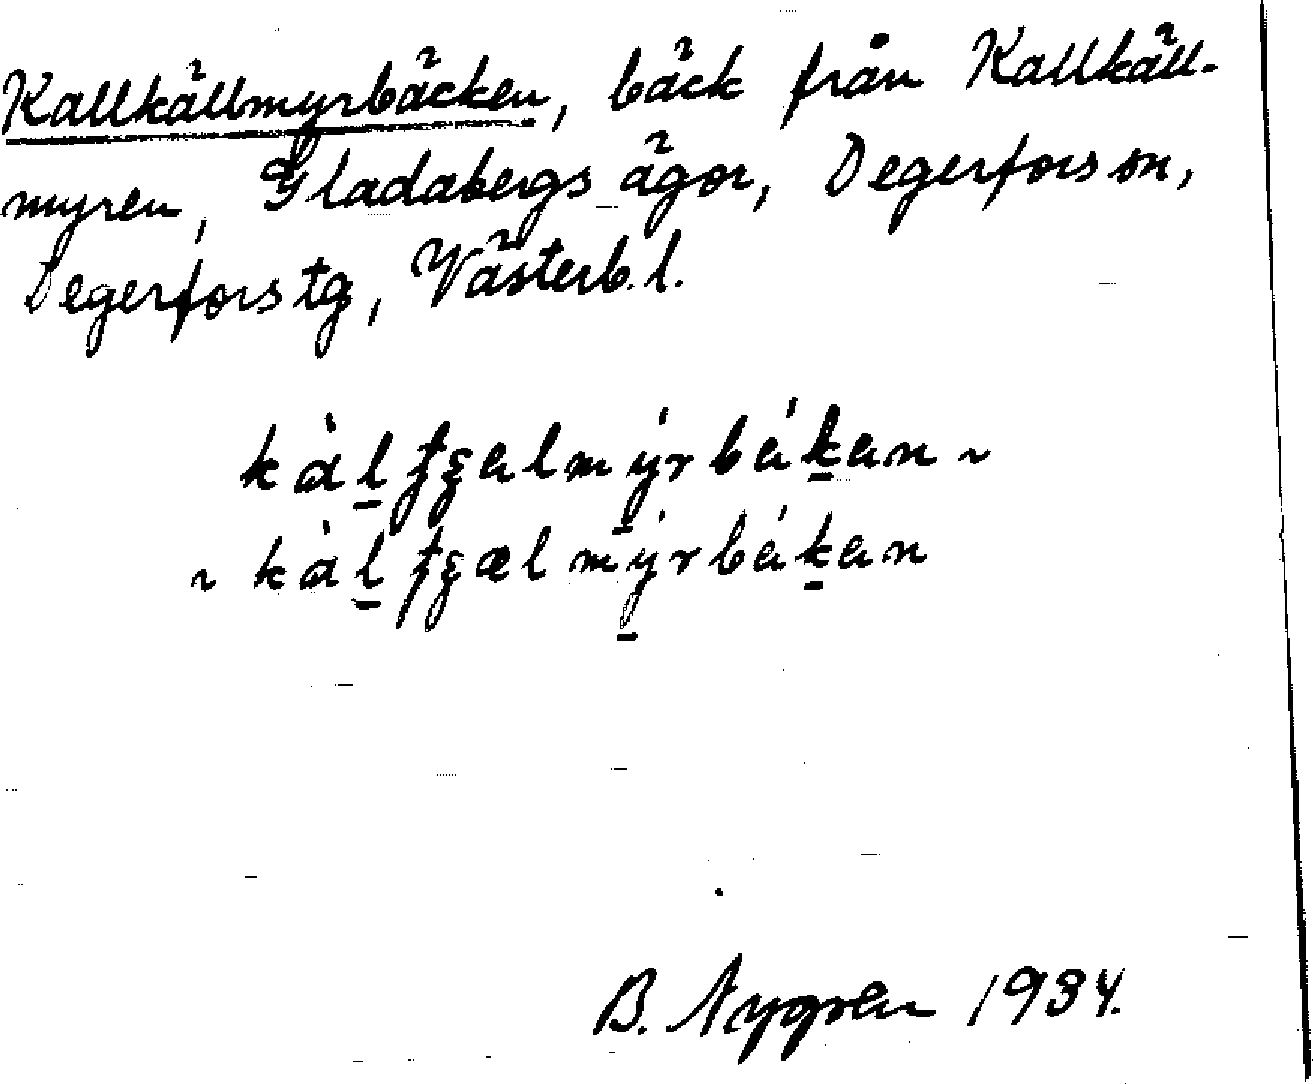 Kallkällmyrbäcken, bäck från Kallkäll-
myren, Gladabergs ägor, Degerfors sn,
Degerfors tg, Västerb. l.
B. Nygren 1934.